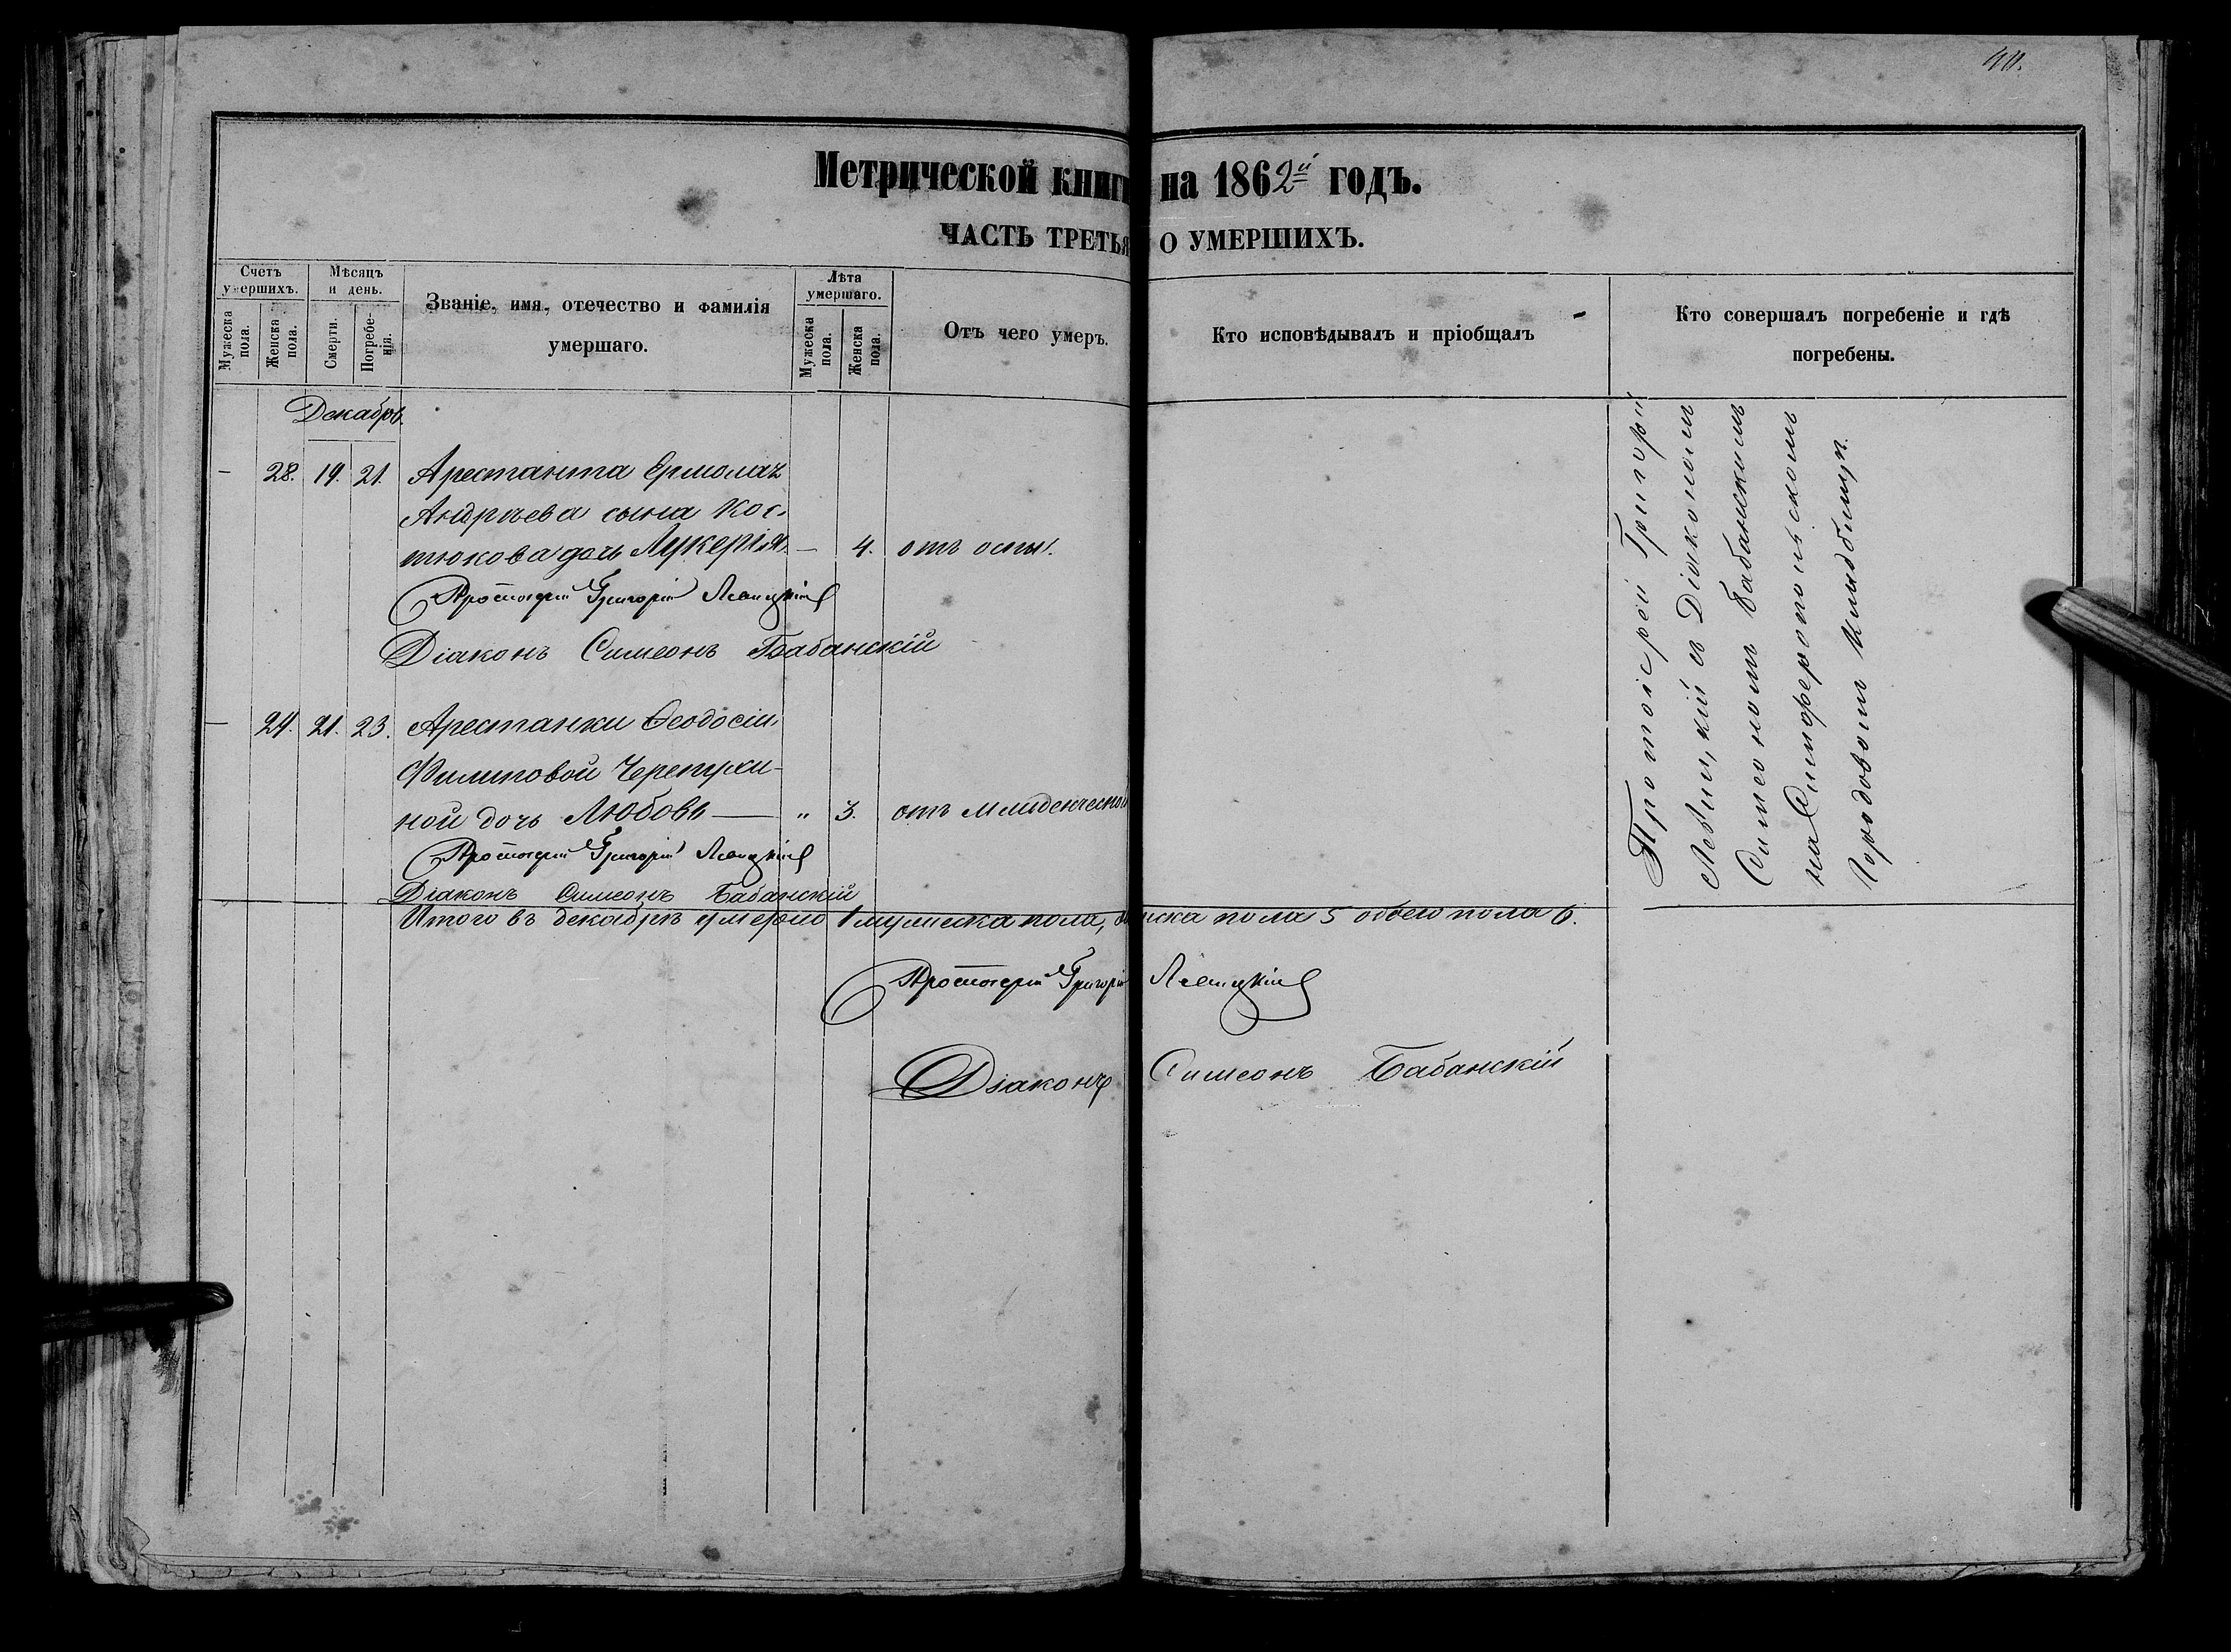 40.
Метрической книги на 1862й годъ.
ЧАСТЬ ТРЕТЬЯ О УМЕРШИХЪ.
Счетъ умершихъ.
Мужеска пола.
Женска пола.
Мѣсяцъ и день.
Смерти.
Погребенія.
Званіе, имя, отечество и фамилія
умершаго.
Лѣта умершаго.
Мужеска пола.
Женска пола.
Отъ чего умеръ.
Кто исповѣдывалъ и пріобщалъ
Кто совершалъ погребеніе и гдѣ
погребены.
Декабрь.
– 28. 19. 21. Арестанта Ермолая
Андреева сына Кос-
тюкова дочь Лукерія. – 4. отъ оспы.
Протоіерей Григорій Левицкій
Діаконъ Симеонъ Бабанскій
– 24. 21. 23. Арестанки Ѳеодосіи
Филиповой Черепухи-
ной дочь Любовь — „ 3. отъ младенческой
Протоіерей Григорій Левицкій
Діаконъ Симеонъ Бабанскій
Протоіерей Григорій
Левицкій съ Діакономъ
Симеономъ Бабанскимъ
на Симферопольскомъ
Городовомъ кладбищѣ.
Итого въ декабрѣ умерло 1 мужеска пола, женска пола 5 обоего пола 6.
Протоіерей Григорій Левицкій
Діаконъ Симеонъ Бабанскій